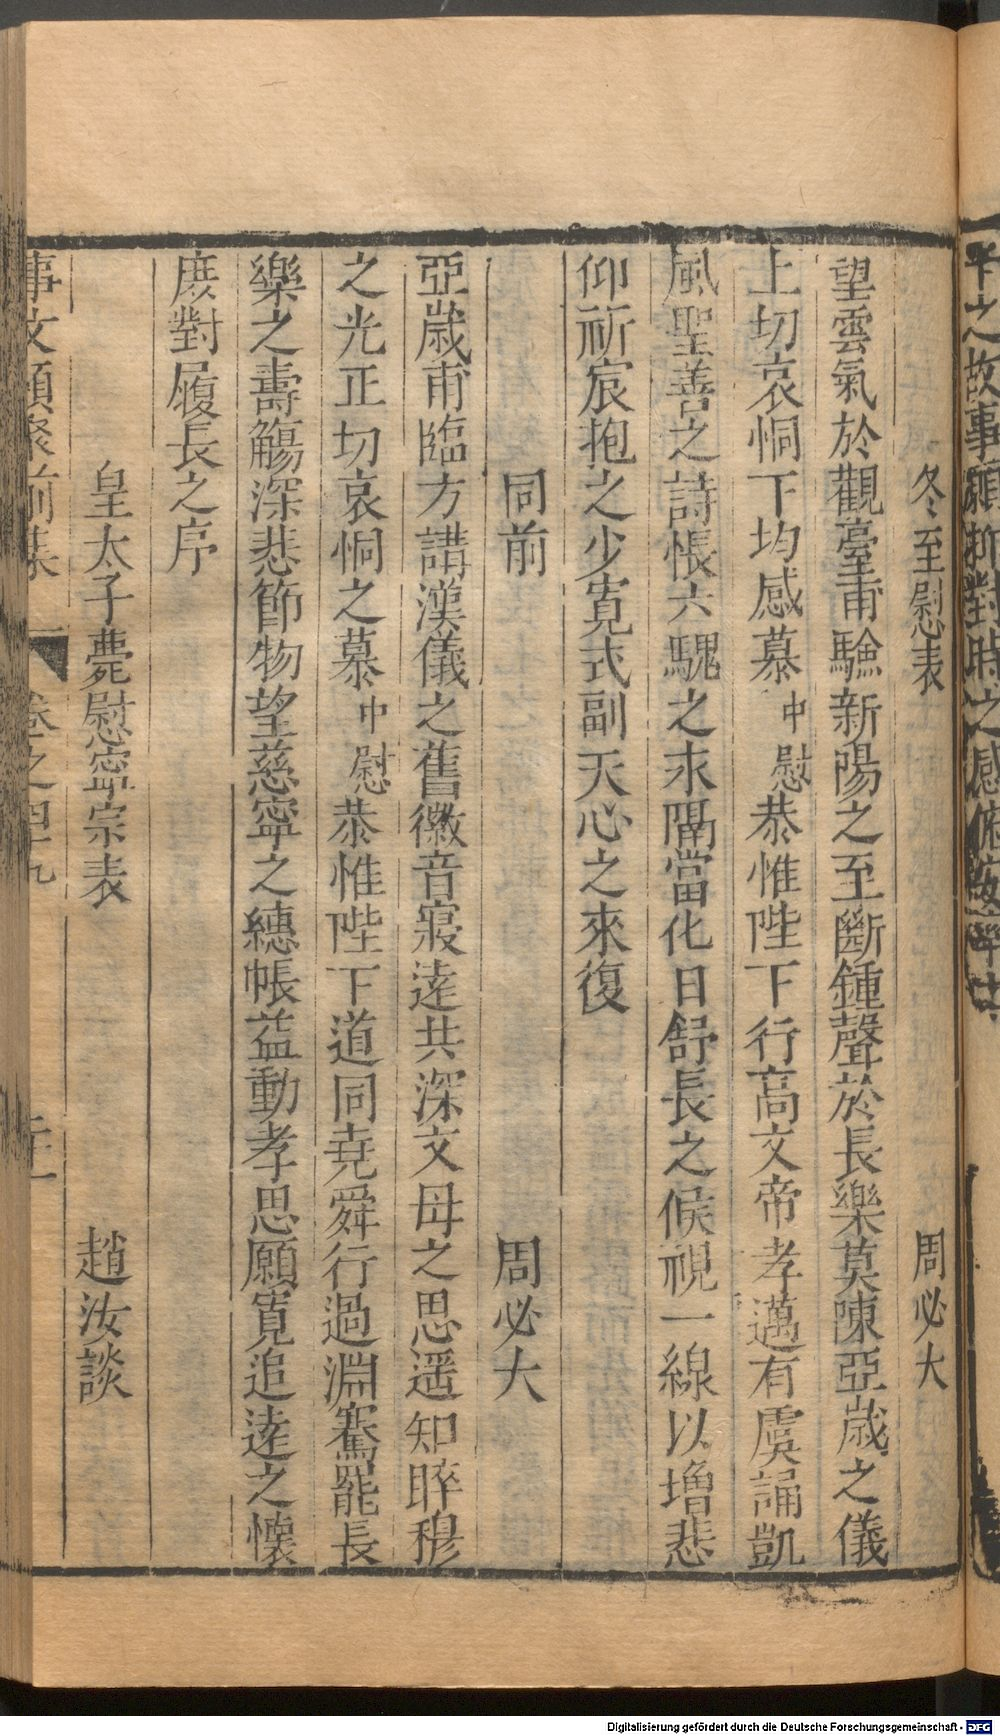 冬至慰表 周必大
望雲氣於觀臺甫驗新陽之至斷鍾聲於長樂莫陳亞歲之儀
上切哀恫下均感慕中慰恭惟陛下行高文帝孝邁有虞誦凱
風聖善之詩悵六騩之求隔當化日舒長之候視一線以增悲
仰祈宸抱之少寬式副天心之來復
同前 周必大
亞歲甫臨方講漢儀之舊徽音寖逺共深文母之思遥知睟穆
之光正切哀恫之慕中慰恭惟陛下道同堯舜行過淵騫罷長
樂之壽觴深悲節物望慈寧之繐帳益動孝思願寬追逺之懷
庶對履長之序
皇太子薨慰寧宗表 趙汝談
事文類聚前集 卷之四九
Digitalisierung gefördert durch die Deutsche Forschungsgemeinschaft - DFG